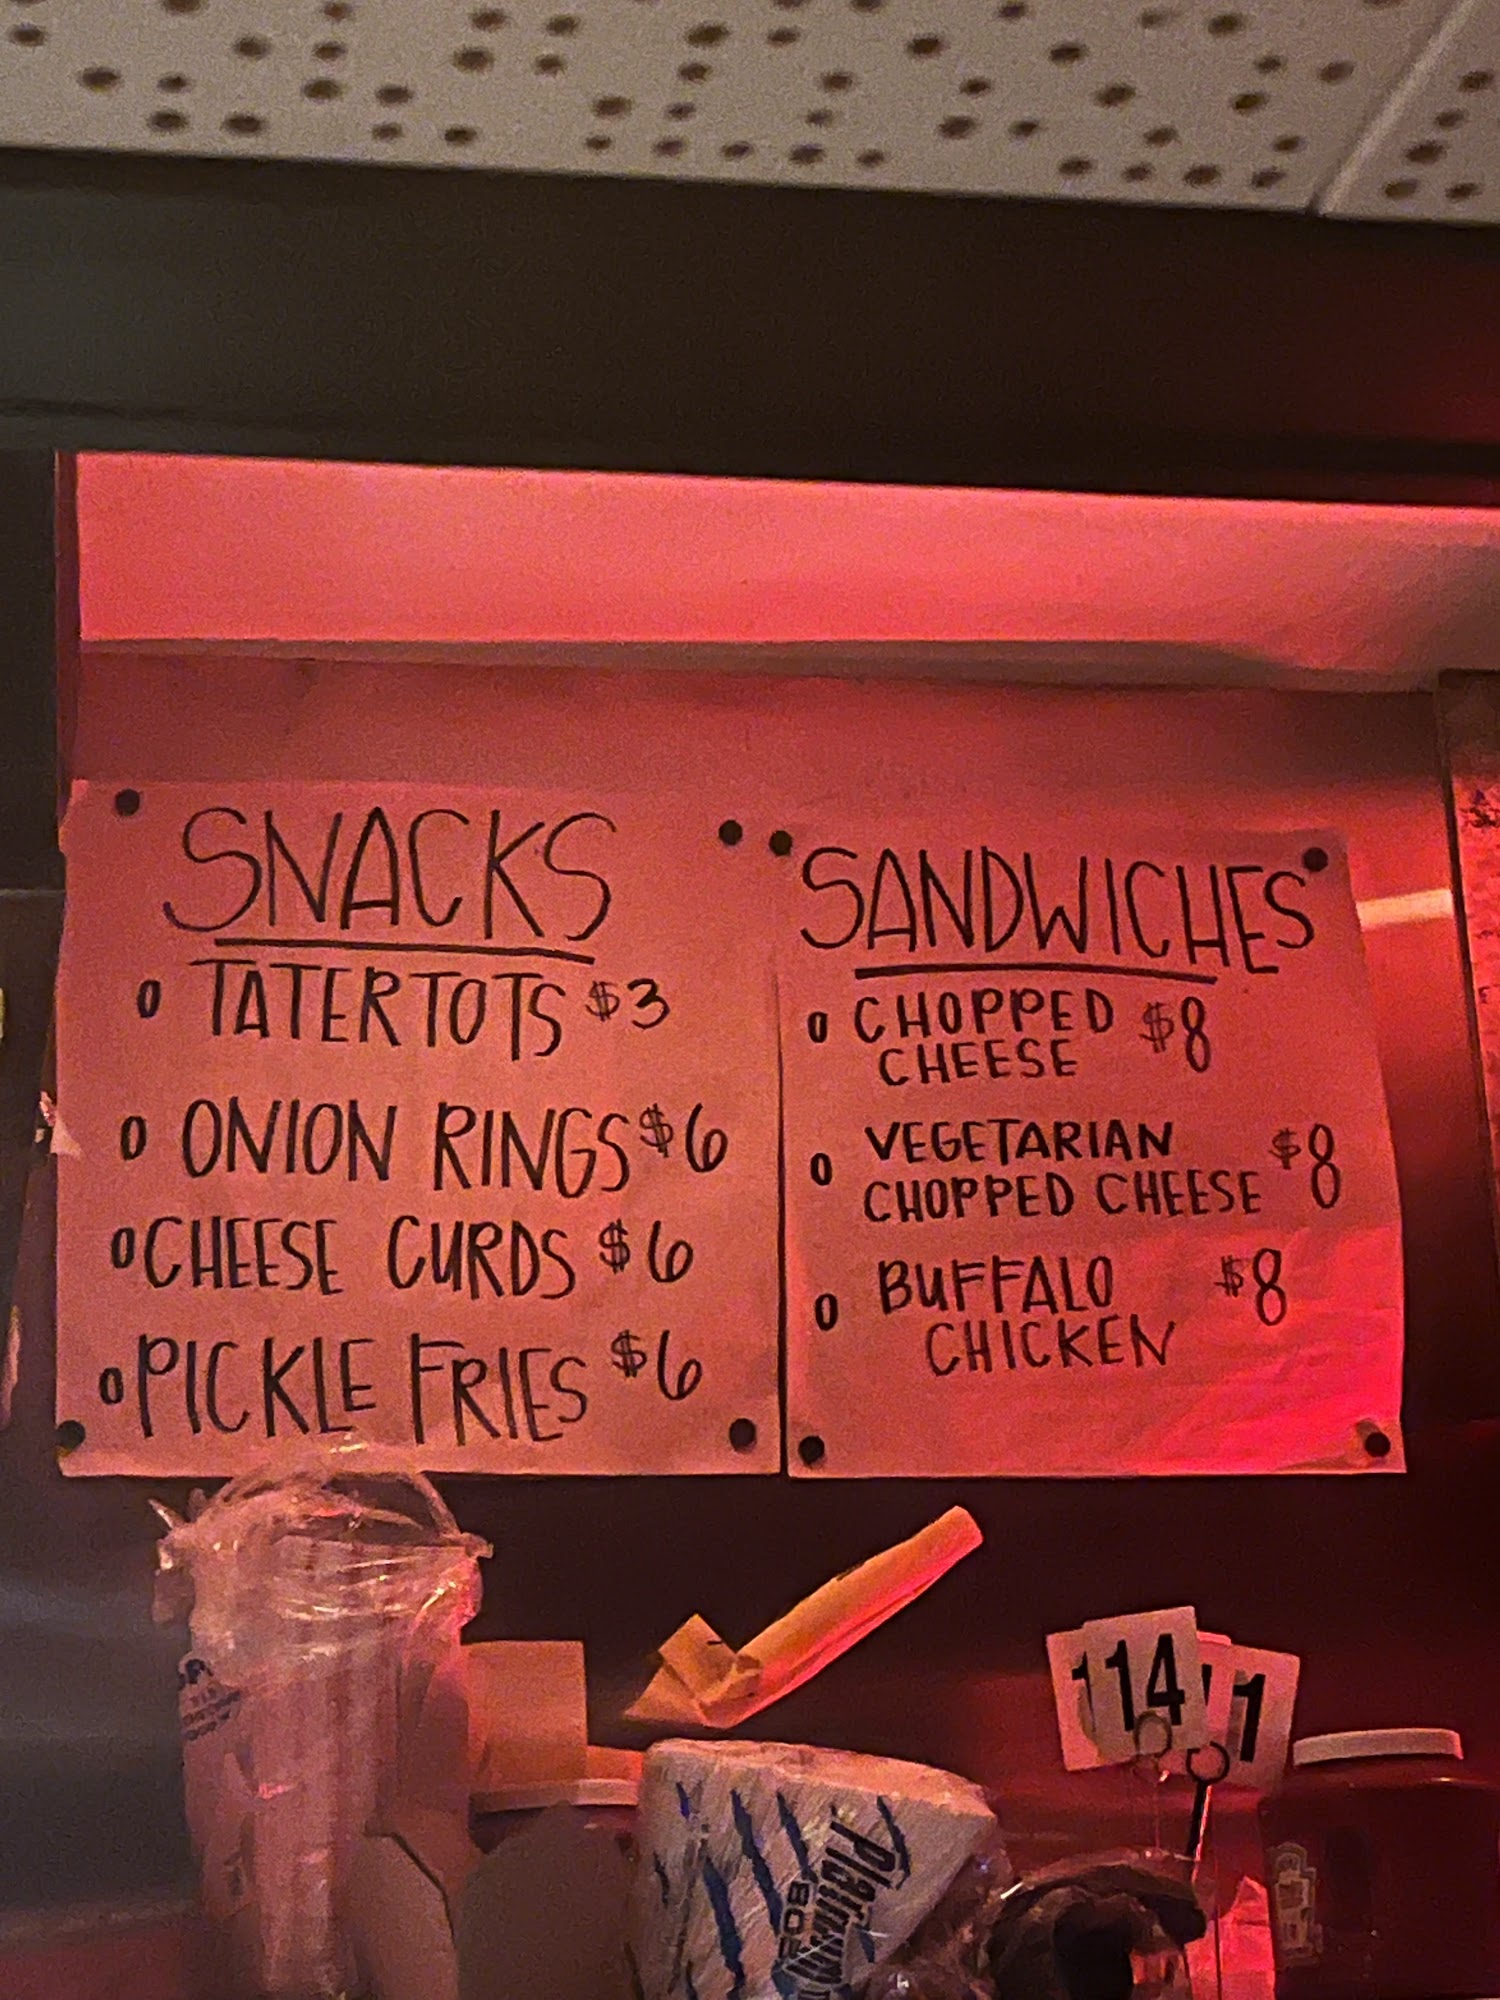 SNACKS
0 TATERTOTS $3
0 ONION RINGS $6
0 CHEESE CURDS $6
0 PICKLE FRIES $6
SANDWICHES
0 CHOPPED $8
CHEESE
0 VEGETARIAN $8
CHOPPED CHEESE
0 BUFFALO $8
CHICKEN
114
1
Platinum